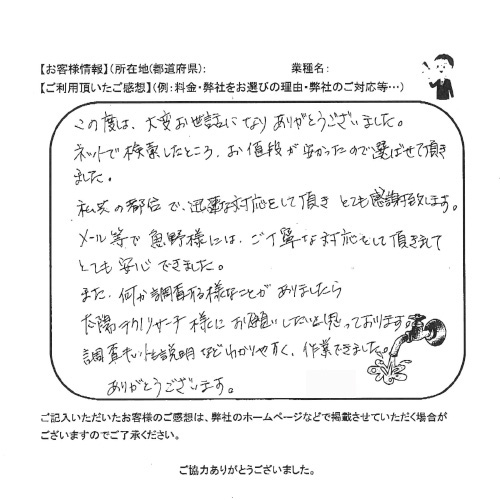 【お客様情報】(所在地(都道府県): 業種名:
【ご利用頂いたご感想】(例:料金・弊社をお選びの理由・弊社のご対応等…)
この度は、大変お世話になりありがとうございました。
ネットで検索したところ、お値段が安かったので選ばせて頂き
ました。
私共の都合で、迅速な対応をして頂き とても感謝致します。
メール等で魚野様には、ご丁寧な対応をして頂きまして
とても安心できました。
また、何か調査する様なことがありましたら
太陽テクリサーチ様にお願いしたいと思っております。
調査キットも説明などわかりやすく、作業できました。
ありがとうございます。
ご記入いただいたお客様のご感想は、弊社のホームページなどで掲載させていただく場合が
ございますのでご了承ください。
ご協力ありがとうございました。